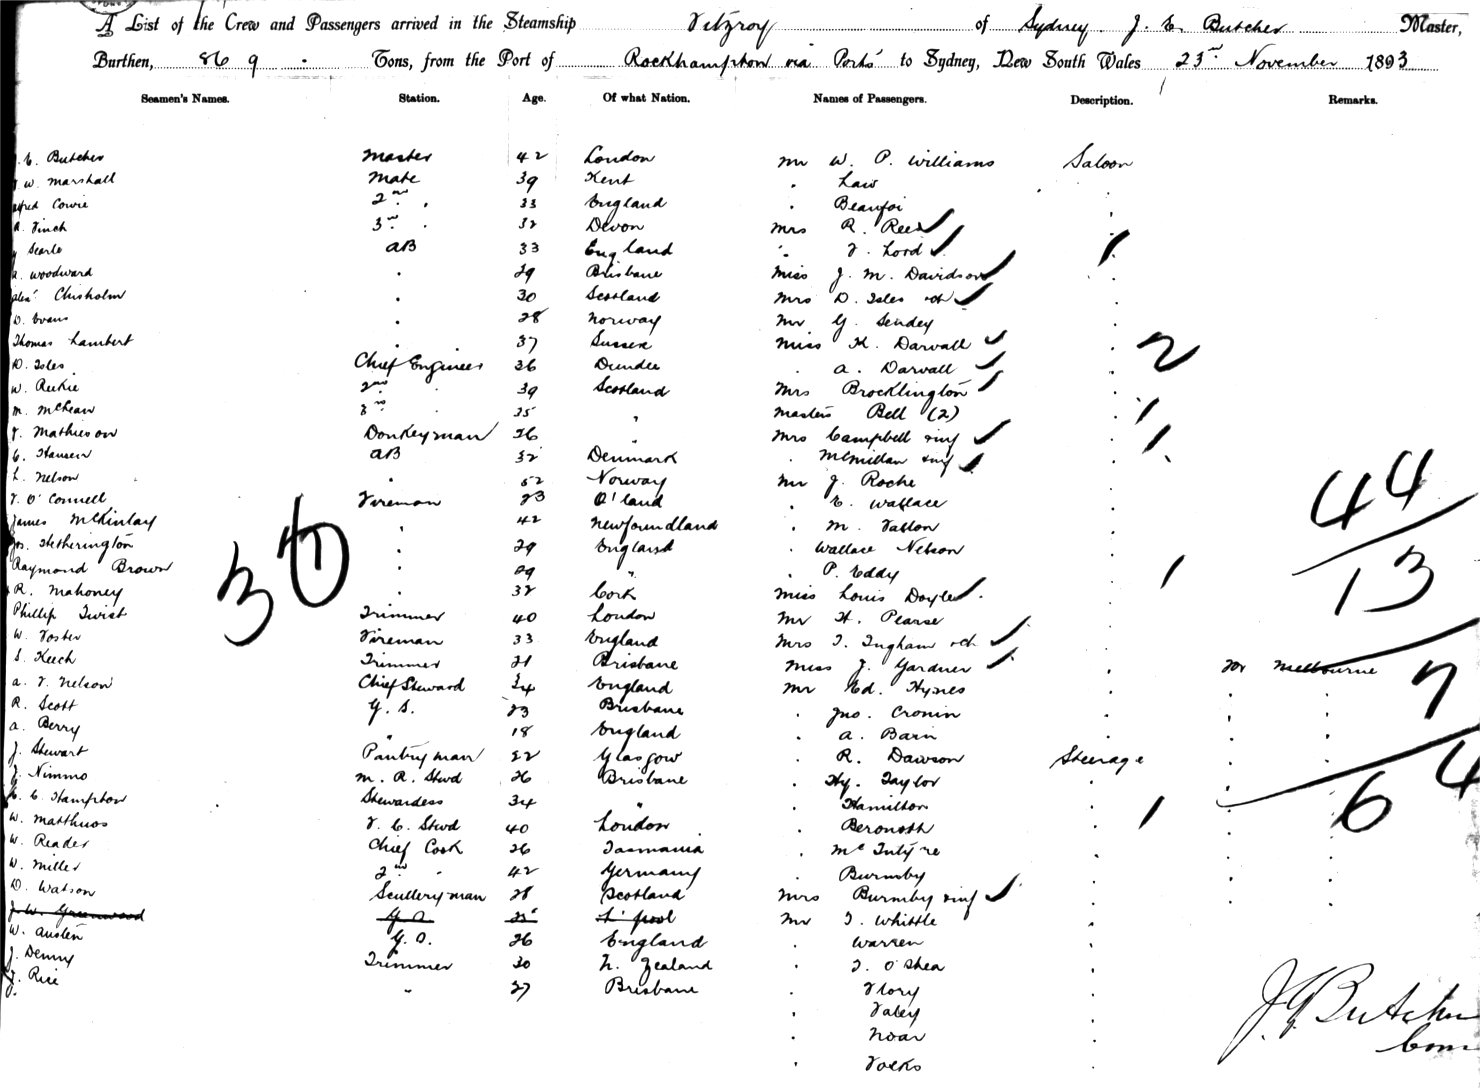 A List of the Crew and Passengers arrived in the Steamship Fitzroy of Sydney J. C. Butcher Master,
Burthen, 869 Tons, from the Port of Rockhampton via Ports to Sydney, New South Wales 23rd November 1893
Seamen's Names. Station. Age. Of what Nation. Names of Passengers. Description. Remarks.
J. C. Butcher Master 42 London Mr W. P. Williams Saloon
W. Marshall Mate 39 Kent " Law "
Alfred Cowie 2nd " 33 England " Beaufoi "
A. Finch 3rd " 32 Devon Mrs R. Reed "
Searle AB 33 England " F. Lord " 1
A. Woodward " 29 Brisbane Miss J. M. Davidson "
Alexr Chisholm " 30 Scotland Mrs D. Isles & ch "
O. Evans " 28 Norway Mr G. Sendey "
Thomas Lambert " 37 Sussex Miss K. Darvall " 2
D. Isles Chief Engineer 36 Dundee " A. Darvall "
W. Reekie 2nd " 39 Scotland Mrs Brocklington "
M. McLean 3rd " 35 " Masters Bell (2) " 1
F. Mathieson Donkeyman 26 " Mrs Campbell & inf " 1
C. Hansen AB 32 Denmark " McMillan & inf "
L. Nelson " 52 Norway Mr J. Roche "
F. O'Connell Fireman 23 O'land " E. Wallace " 44
James McKinlay " 42 Newfoundland " M. Fallon "
Jos. Hetherington " 29 England " Wallace Nelson "
Raymond Brown " 29 " " P. Eddy " 1 13
R. Mahoney " 32 Cork Miss Louis Doyle "
36
Phillip Twist Trimmer 40 London Mr H. Pearse "
W. Foster Fireman 33 England Mrs T. Ingham & ch "
S. Keech Trimmer 21 Brisbane Miss J. Gardner " for Melbourne
A. F. Nelson Chief Steward 34 England Mr Ed. Hynes " " " 7
R. Scott G. S. 23 Brisbane " Jno. Cronin " " "
A. Berry " 18 England " A. Bain " " "
J. Stewart Pantryman 22 Glasgow " R. Dawson Steerage " "
J. Nimmo M. R. Stwd 26 Brisbane " Hy. Taylor " " "
E. C. Hampton Stewardess 34 " " Hamilton " " " 64
W. Matthews F. C. Stwd 40 London " Beronsth " 1 " "
W. Reader Chief Cook 26 Tasmania " McIntyre " " "
W. Miller 2nd " 42 Germany " Burmby " " "
D. Watson Sculleryman 28 Scotland Mrs Burmby & inf " " "
J. W. Greenwood G. S. 25 L'pool Mr T. Whittle "
W. Austen G. S. 26 England " Warren "
J. Denny Trimmer 30 N. Zealand " T. O'Shea "
J. Rice " 27 Brisbane " Flory "
" Faley "
" Noar "
" Folks "
J. C. Butcher
Com